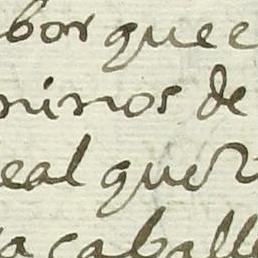 bor que e
minos de
eal que
a caballe